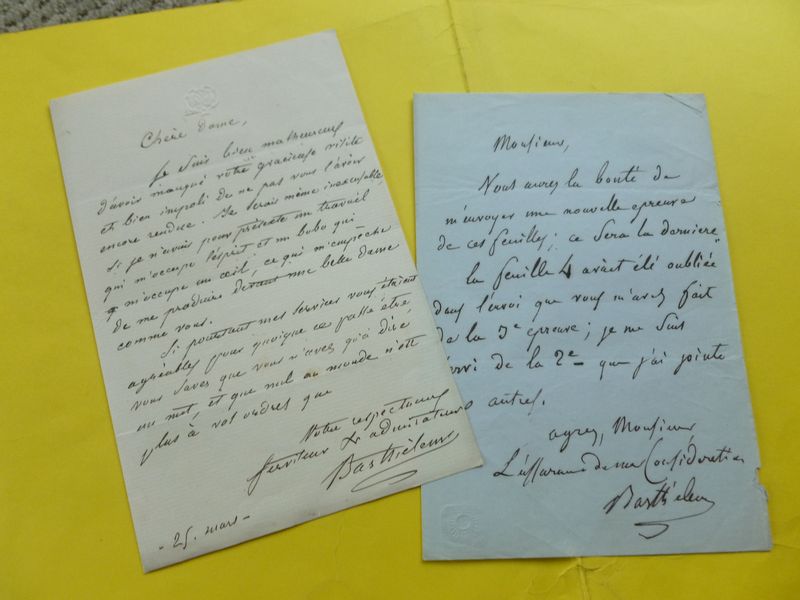 Chère Dame,
Je suis bien malheureux
d'avoir manqué votre gracieuse visite
et bien impoli de ne pas vous l'avoir
encore rendue. Je serais même inexcusable,
si je n'avais pour prétexte un travail
qui m'occupe l'esprit et un bobo qui
m'occupe un œil, ce qui m'empêche
de me produire devant une belle dame
comme vous.
Si pourtant mes services vous étaient
agréables pour quoique ce passe être
vous savez que vous n'avez qu'à dire
un mot, et que nul au monde n'est
plus à vos ordres que
Votre respectueux
serviteur & admirateur
Barthélemy
- 25. mars -
Monsieur,
Vous aurez la bonté de
m'envoyer une nouvelle épreuve
de ces feuilles; ce sera la dernière
la feuille 4 avait été oubliée
dans l'envoi que vous m'avez fait
de la 3e épreuve; je me suis
servi de la 2e que j'ai jointe
autres.
agréez, Monsieur
L'assurance de ma Considération
Barthélemy